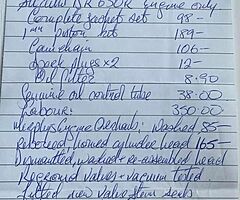 DR 650R Engine only
Complete gasket set 98-
1mm piston kit 189-
Camchain 106-
Spark plugs x2 12-
Oil filter 8.90
Genuine oil control tube 38.00
Labour: 350.00
Engine Overhauls: Washed 85-
Rebored, honed cylinder head 165-
Dismantled, washed + re-assembled head
Refaced valves + vacuum tested
Fitted new valve stem seals